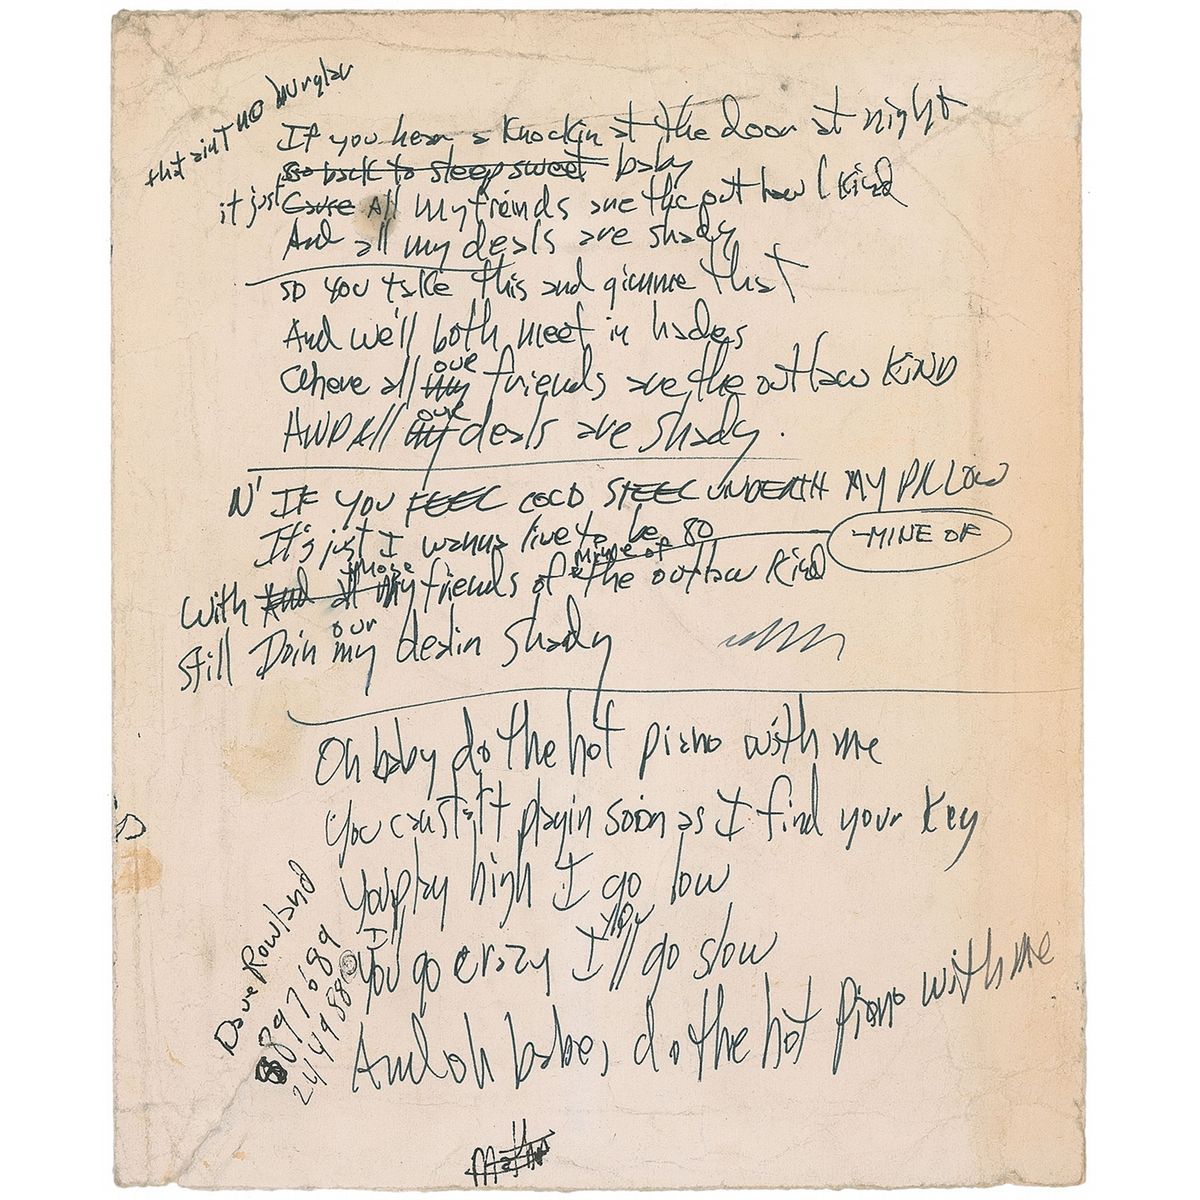 that aint no burglar
If you hear a Knockin at the door at night
go back to sleep sweet baby
it just Cause All my freinds are the outlaw Kind
And all my deals are shady
so you take this and gimme that
And we'll both meet in hades
Where all my our friends are the outlaw KIND
AND All my our deals are shady.
N' IF YOU FEEL COLD STEEL UNDERTH MY PILLOW
It's just I wanna live to be 80
-MINE OF
With And all my those friends of mine of the outlaw Kind
Still Doin my our dealin shady
Oh baby do the hot piano with me
You can start playin soon as I find your key
You play high I go low
I You go crazy I'll you go slow
And oh babe, do the hot piano with me
Dave Rowland
8897689
2449880